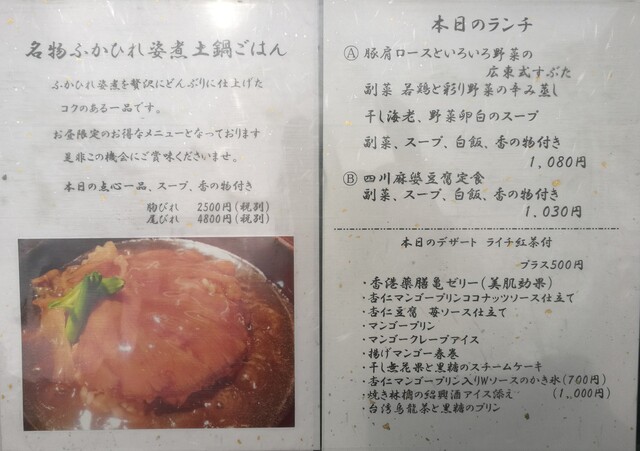 名物ふかひれ姿煮土鍋ごはん
ふかひれ姿煮を贅沢にどんぶりに仕上げた
コクのある一品です。
お昼限定のお得なメニューとなっております
是非この機会にご賞味くださいませ。
本日の点心一品、スープ、香の物付き
胸びれ 2500円(税別)
尾びれ 4800円(税別)
本日のランチ
Ⓐ 豚肩ロースといろいろ野菜の
広東式すぶた
副菜 若鶏と彩り野菜の辛み蒸し
干し海老、野菜卵白のスープ
副菜、スープ、白飯、香の物付き
1,080円
Ⓑ 四川麻婆豆腐定食
副菜、スープ、白飯、香の物付き
1,030円
本日のデザート ライチ紅茶付
プラス500円
・香港薬膳亀ゼリー(美肌効果)
・杏仁マンゴープリンココナッツソース仕立て
・杏仁豆腐 苺ソース仕立て
・マンゴープリン
・マンゴークレープアイス
・揚げマンゴー春巻
・干し無花果と黒糖のスチームケーキ
・杏仁マンゴープリン入りWソースのかき氷(700円)
・焼き林檎の紹興酒アイス添え (1,000円)
・台湾烏龍茶と黒糖のプリン